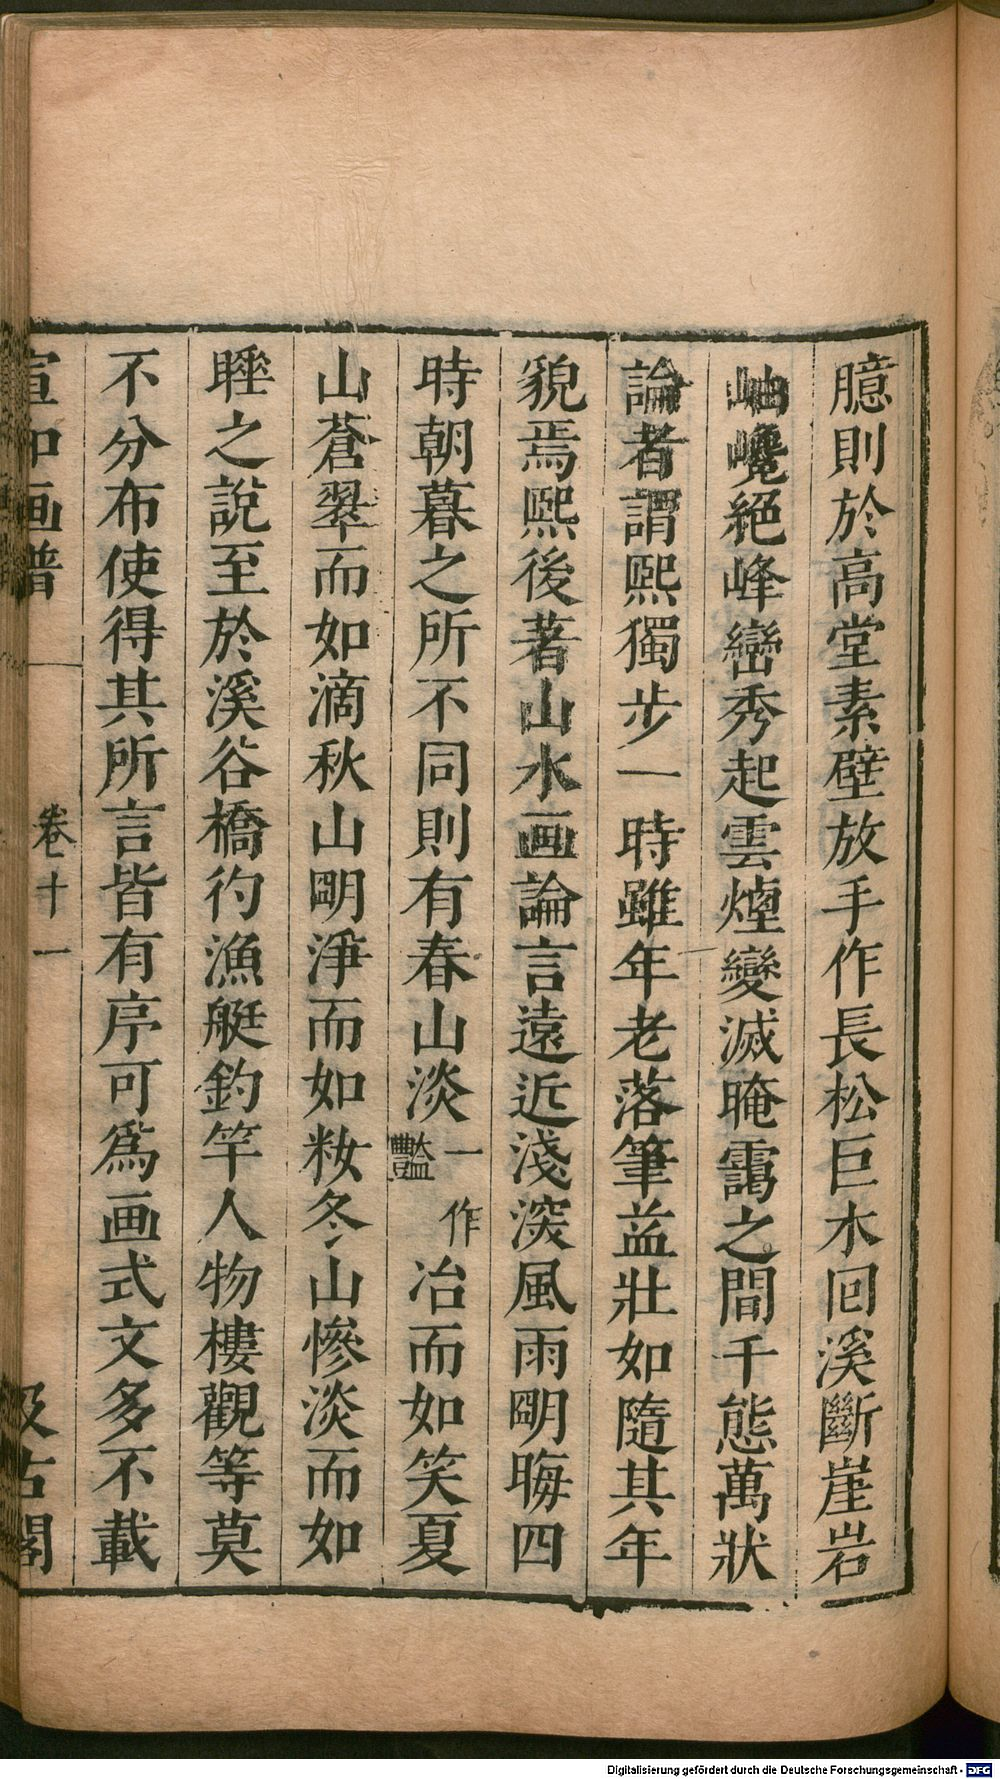 臆則於高堂素壁放手作長松巨木回溪斷崖岩
岫巉絕峰巒秀起雲煙變滅晻靄之間千態萬狀
論者謂熙獨步一時雖年老落筆益壯如隨其年
貌焉熙後著山水画論言遠近淺深風雨明晦四
時朝暮之所不同則有春山淡一作豔冶而如笑夏
山蒼翠而如滴秋山明淨而如妝冬山慘淡而如
睡之說至於溪谷橋彴漁艇釣竿人物樓觀等莫
不分布使得其所言皆有序可爲画式文多不載
宣和画譜 卷十一 汲古閣
Digitalisierung gefördert durch die Deutsche Forschungsgemeinschaft - DFG